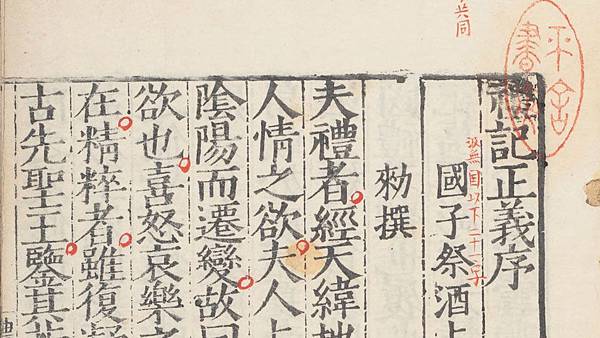 共同
禮記正義序
以下二十三字
國子祭酒上
勑撰
夫禮者經天緯地
人情之欲夫人上
陰陽而遷變故曰
欲也喜怒哀樂之
在精粹者雖復凝
古先聖王鑒其